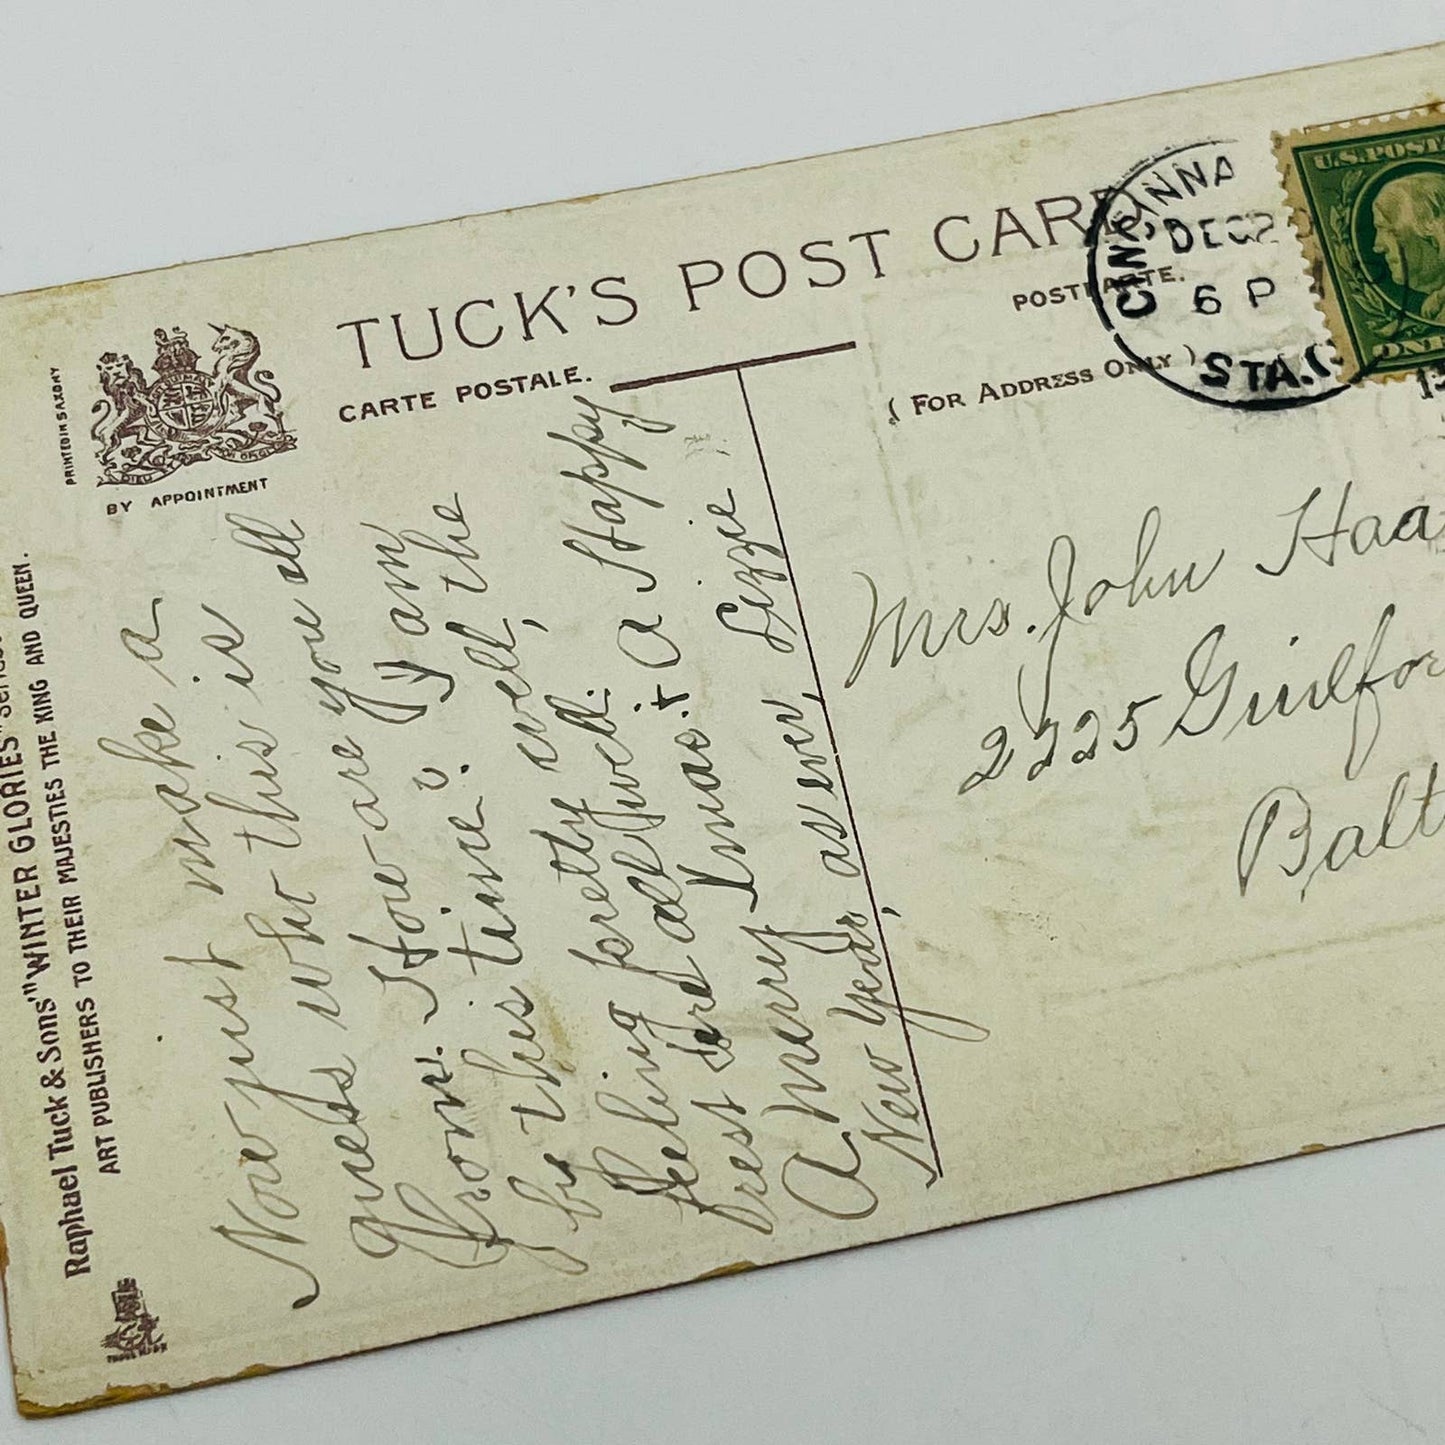 TUCK'S POST CARD
CARTE POSTALE.
(FOR ADDRESS ONLY)
BY APPOINTMENT
PRINTED IN SAXONY
Raphael Tuck & Sons' "WINTER GLORIES"
ART PUBLISHERS TO THEIR MAJESTIES THE KING AND QUEEN.
DEC 2
6 P
STA.
U.S. POST
ONE
Now just make a
guess who this is
from. How are you all
by this time? I am
feeling pretty well, the
rest are all well.
A merry Xmas. + a Happy
New Year, as ever, Lizzie
Mrs. John Haa
2225 Guilfor
Balt